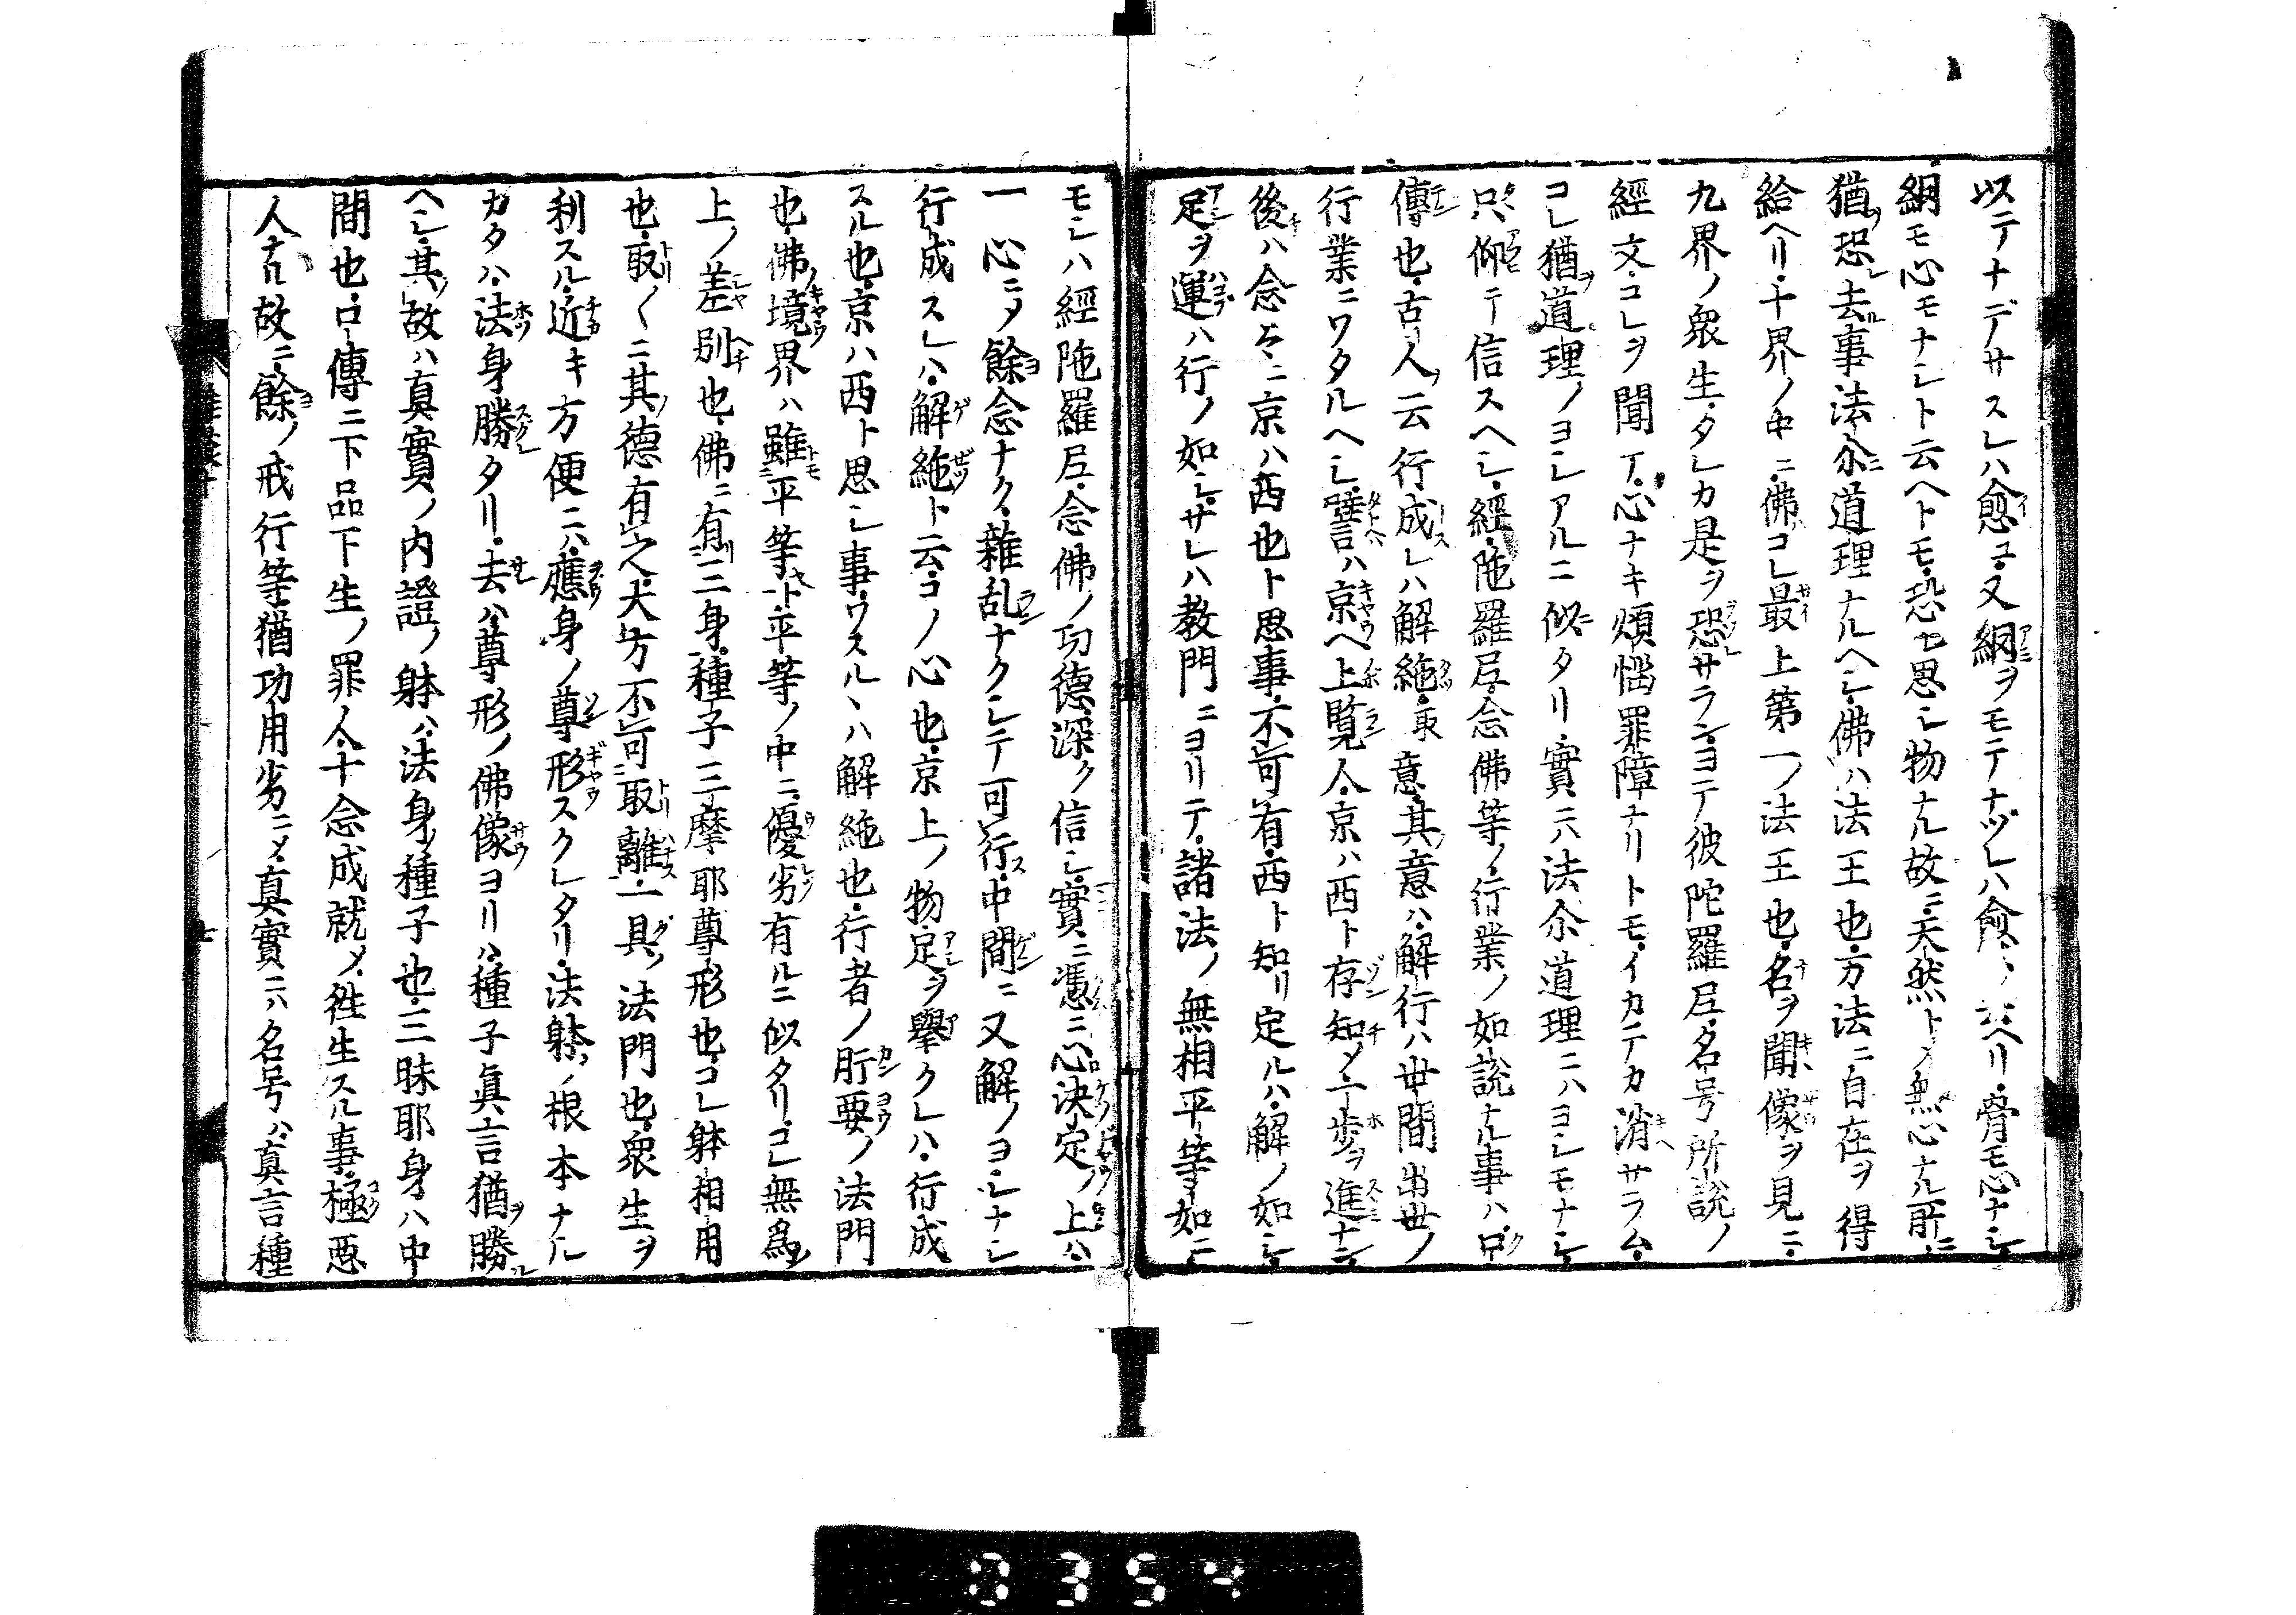 以テナデサスレハ愈ユ又網ヲモテナヅレハ愈ヘリ骨モ心ナシ
網モ心モナシト云ヘトモ恐セ思シ物ナル故ニ天然トメ無心ナル所ニ
猶恐レ去ル事法尓ニ道理ナルヘシ佛ハ法王也万法ニ自在ヲ得
給ヘリ十界ノ中ニ佛コレ最上第一ノ法王也名ヲ聞像ヲ見ニ
九界ノ衆生タレカ是ヲ恐サランヨテ彼陀羅尼名号所説ノ
經文コレヲ聞了心ナキ煩惱罪障ナリトモイカテカ消サラム
コレ猶道理ノヨシアルニ似タリ實ニハ法尓道理ニハヨシモナシ
只仰テ信スヘシ經陁羅尼念佛等ノ行業ノ如説ナル事ハ口
傳也古人云行成レハ解絶取意其意ハ解行ハ世間出世ノ
行業ニワタルヘシ譬ハ京ヘ上覽人京ハ西ト存知メ一歩ヲ進ナシ
後ハ念々ニ京ハ西也ト思事不可有西ト知リ定ルハ解ノ如シ
足ヲ運ハ行ノ如シサレハ教門ニヨリテ諸法ノ無相平等如ニ
モシハ經陁羅尼念佛ノ功德深ク信シ實ニ憑ニ心決定ノ上ハ
一心ニメ餘念ナク雜乱ナクシテ可行ス中間ニ又解ノヨシナシ
行成スレハ解絶ト云コノ心也京上ノ物足ヲ擧クレハ行成
スル也京ハ西ト思シ事ワスルヽハ解絶也行者ノ肝要ノ法門
也佛境界ハ雖平等ト平等ノ中ニ優劣有ルニ似タリコレ無爲
上ノ差別也佛ニ有三身種子三摩耶尊形也コレ躰相用
也取〱ニ其德有之大方不可取離一具ノ法門也衆生ヲ
利スル近キ方便ニハ應身ノ尊形スクレタリ法躰ノ根本ナル
カタハ法身勝タリ去ハ尊形ノ佛像ヨリハ種子眞言猶勝
ヘシ其故ハ真實ノ内證ノ躰ハ法身種子也三昧耶身ハ中
間也口傳ニ下品下生ノ罪人十念成就メ徃生スル事極悪
人ナル故ニ餘ノ戒行等猶功用劣ニメ真實ニハ名号ハ真言種
七
3354